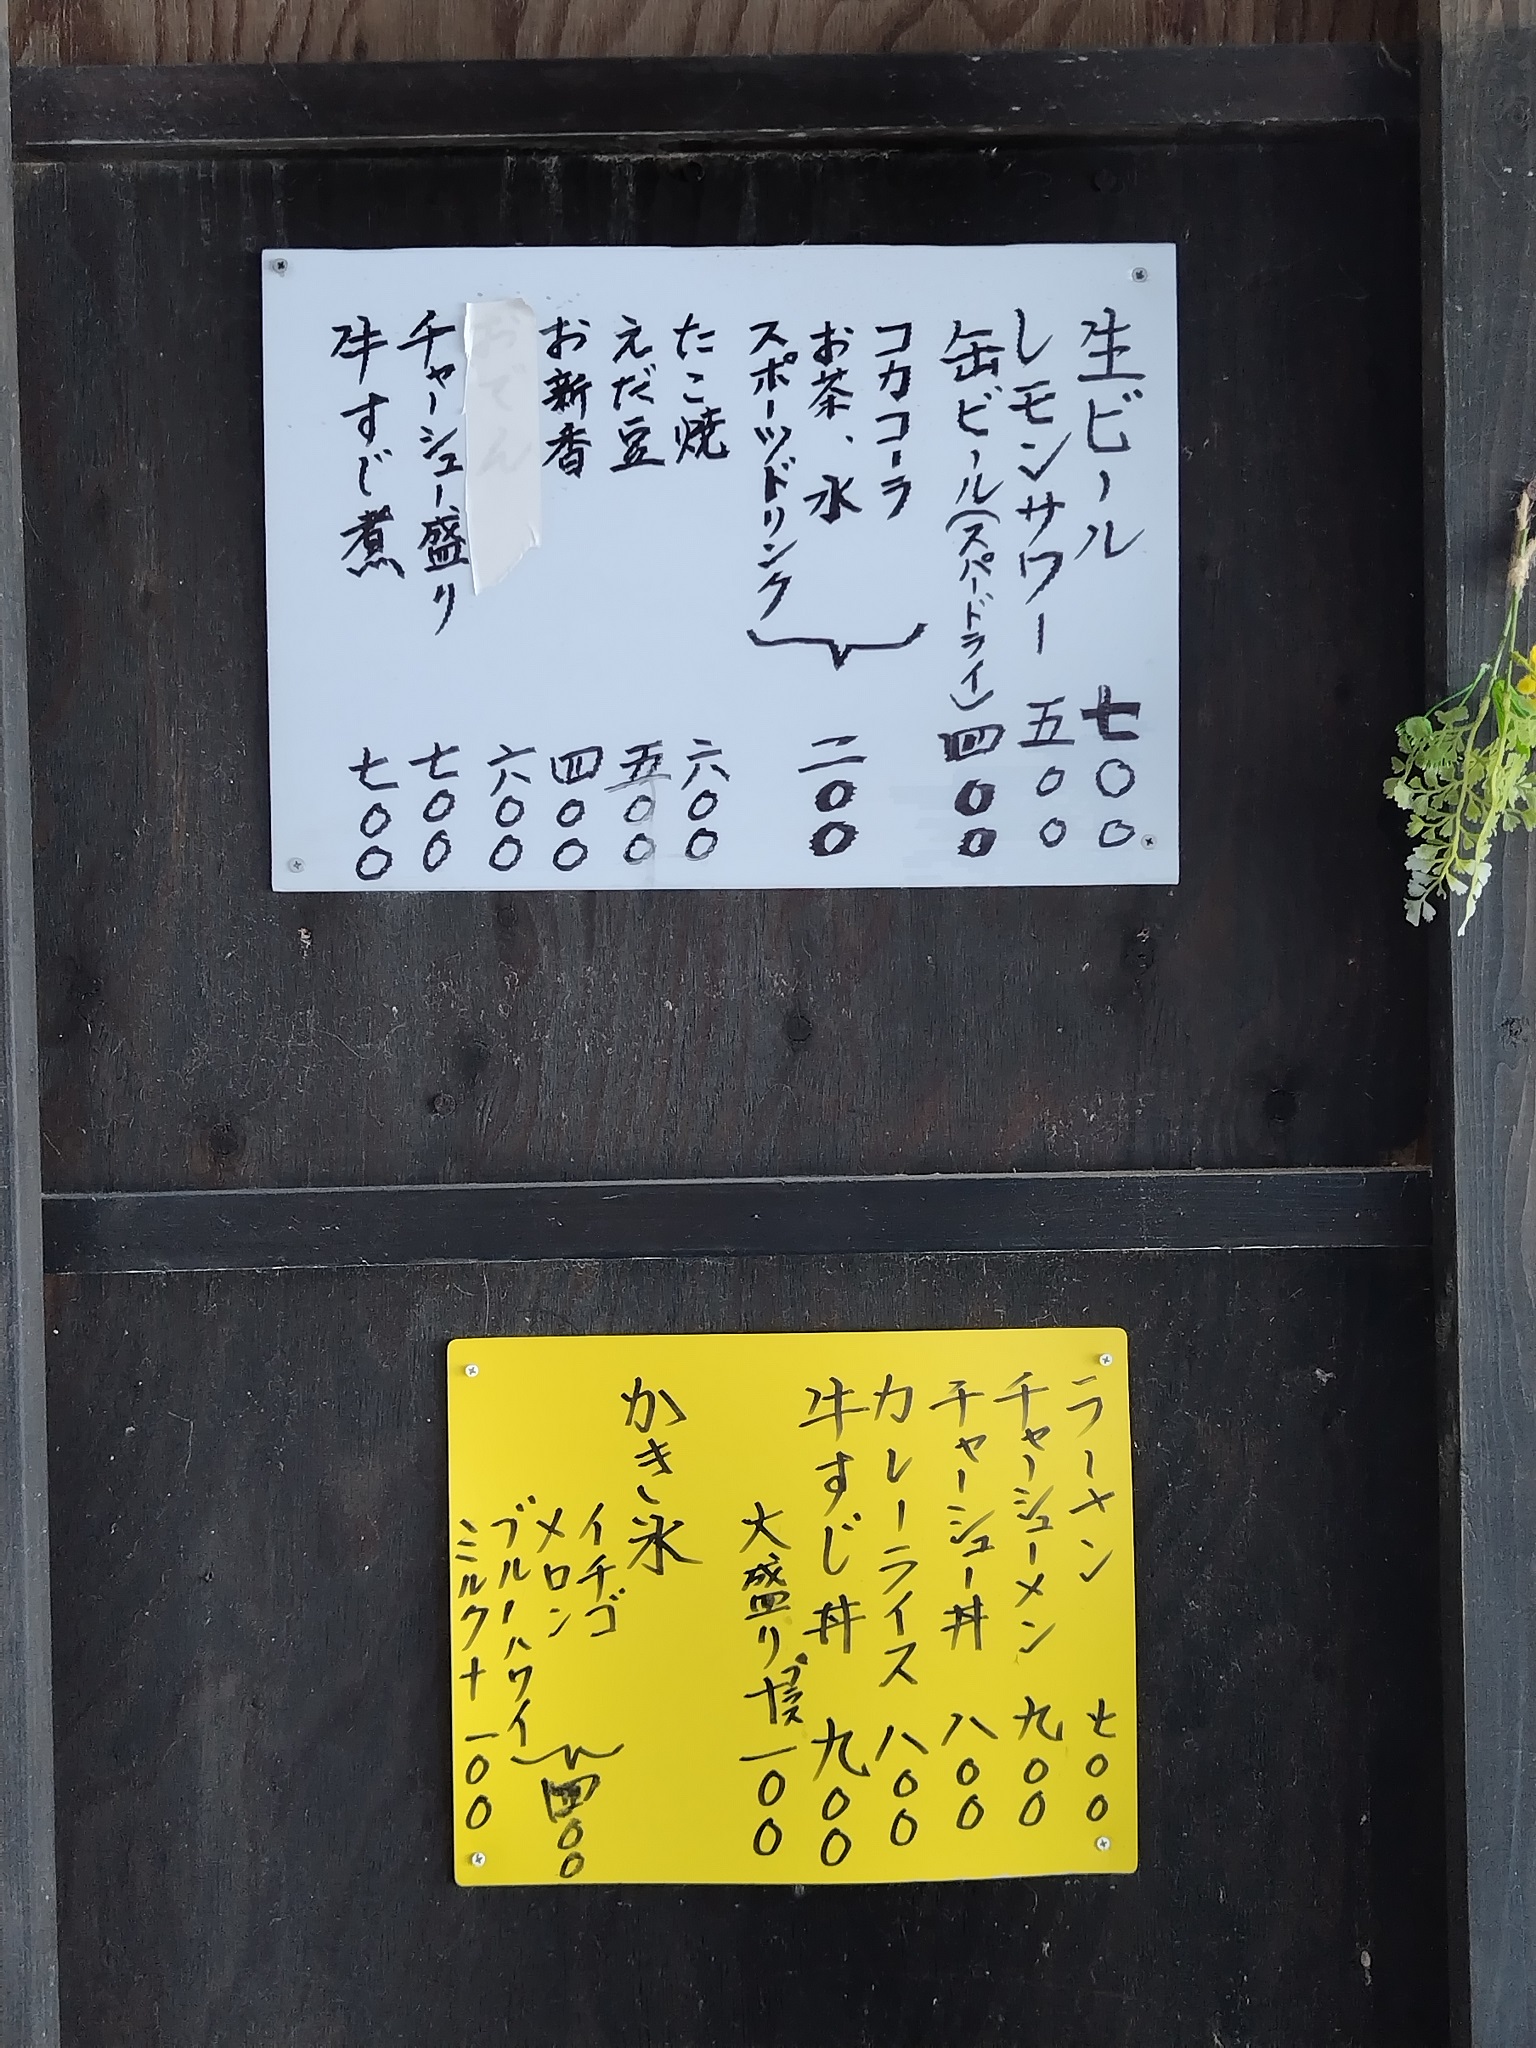 生ビール 七〇〇
レモンサワー 五〇〇
缶ビール(スパードライ) 四〇〇
コカコーラ
お茶、水
スポーツドリンク
二〇〇
たこ焼 六〇〇
えだ豆 五〇〇
お新香 四〇〇
おでん 六〇〇
チャーシュー盛り 七〇〇
牛すじ煮 七〇〇
ラーメン 七〇〇
チャーシューメン 九〇〇
チャーシュー丼 八〇〇
カレーライス 八〇〇
牛すじ丼 九〇〇
大盛りプラス+一〇〇
かき氷
イチゴ
メロン
ブルーハワイ
四〇〇
ミルク+一〇〇